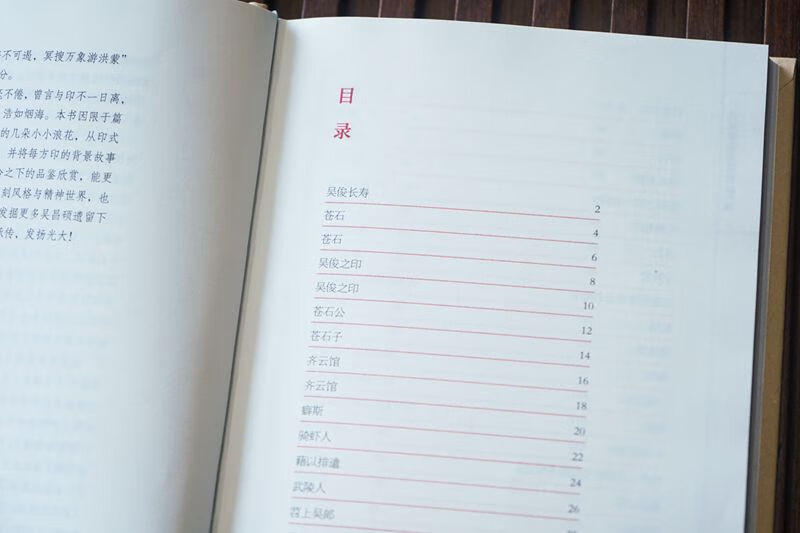 不可遏，冥搜万象游洪蒙”
分。
不倦，曾言与印不一日离，
浩如烟海。本书因限于篇
的几朵小小浪花，从印式
并将每方印的背景故事
之下的品鉴欣赏，能更
刻风格与精神世界，也
发掘更多吴昌硕遗留下
承传，发扬光大！
目
录
吴俊长寿 2
苍石 4
苍石 6
吴俊之印 8
吴俊之印 10
苍石公 12
苍石子 14
齐云馆 16
齐云馆 18
癖斯 20
骑虾人 22
藉以排遣 24
武陵人 26
苕上吴郎